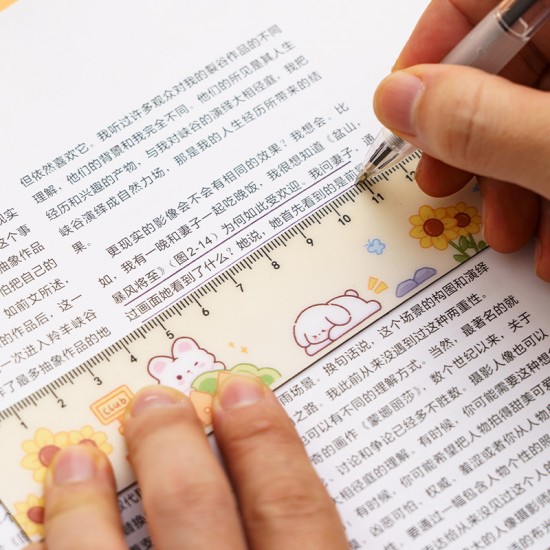 现实
这个事
抽象作品
怕把自己的
如前文所述，
的作品后，这一
一次进入羚羊峡谷
了最多抽象作品的地
但依然喜欢它。我听过许多观众对我的裂谷作品的不同
理解，他们的背景和我完全不同。他们的所见是其人生
经历和兴趣的产物，与我对峡谷的演绎大相径庭，我把
峡谷演绎成自然力场，那是我的人生经历所带来的结
果。
更现实的影像会不会有相同的效果？我想会。比
如，我有一晚和妻子一起吃晚饭，我很想知道《盆山，
暴风将至》（图2-14）为何如此受欢迎。我问妻子，通
过画面她看到了什么？她说，她首先看到的是前
1 2 3 4 5 6 7 8 9 10 11 12
Club
雨场景。换句话说，这个场景的构图和演绎
之路。我此前从来没遇到过这种两重性。
也可以有不同的理解方式。当然，最著名的就
奇的画作《蒙娜丽莎》，数个世纪以来，关于
，讨论和争论已经多不胜数。摄影人像也可以
大相径庭的理解。有时候，你可能需要这种想
有时候，你可能希望把人物拍得甜美可爱
凶恶可怕、权威、羞涩或者你从人物
要通过一幅包含人物个性的照
达给从来没见过这个人的
大的人像摄影师